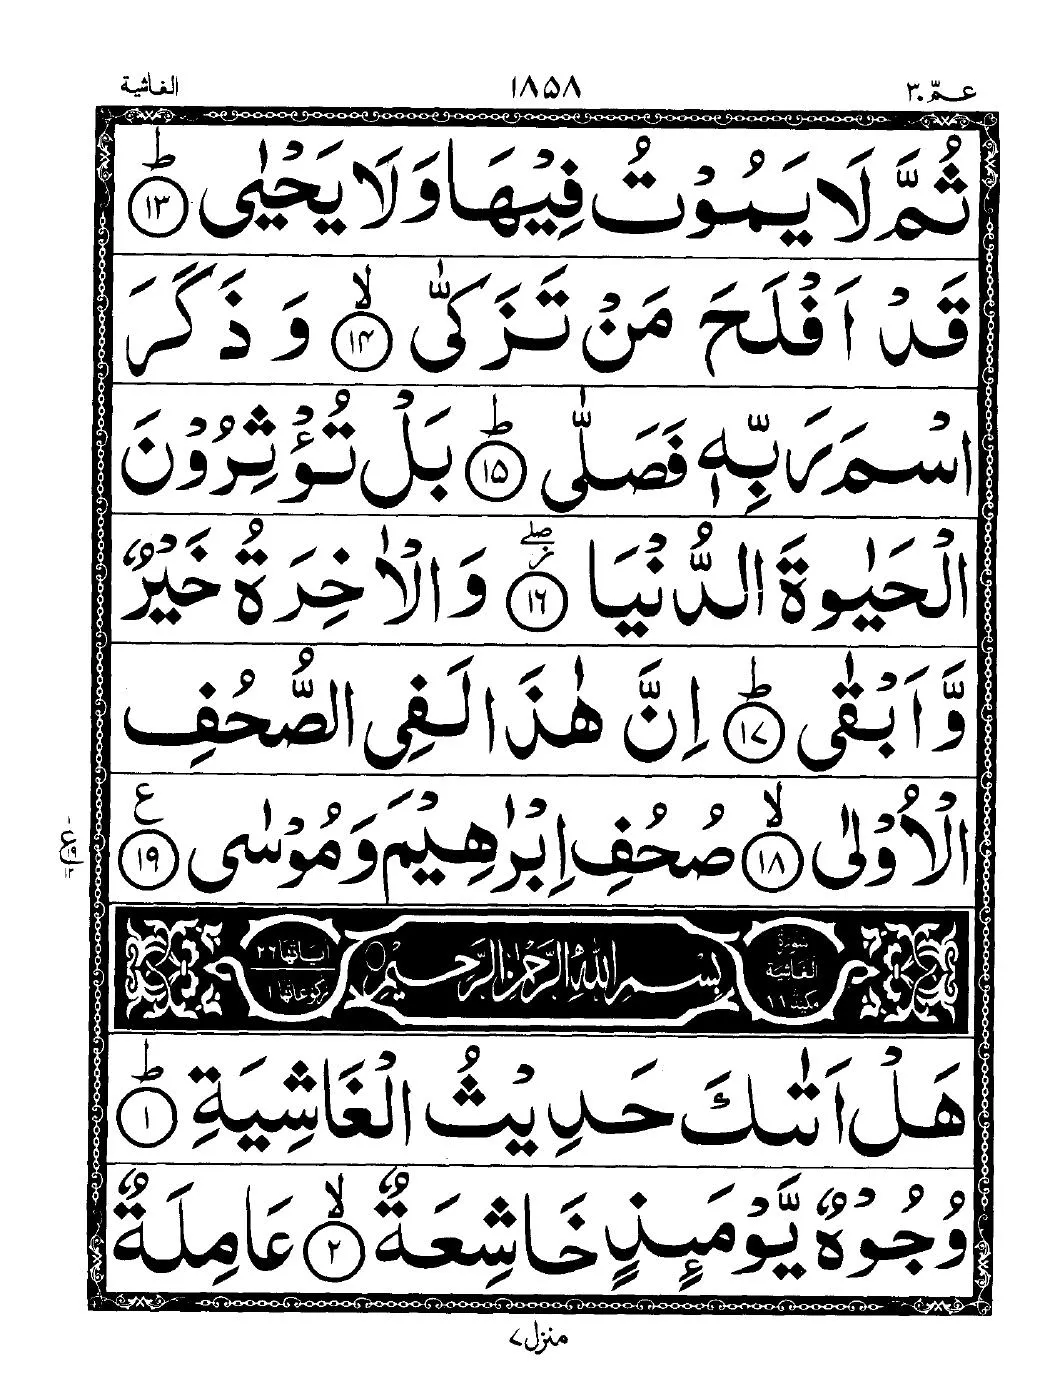 عـمّ ٣٠
١٨٥٨
الغاشية
ثُمَّ لَا يَمُوْتُ فِيْهَا وَلَا يَحْيٰى ؕ ١٣
قَدْ اَفْلَحَ مَنْ تَزَكّٰى ۙ ١۴ وَ ذَكَرَ
اسْمَ رَبِّهٖ فَصَلّٰى ؕ ١۵ بَلْ تُؤْثِرُوْنَ
الْحَيٰوةَ الدُّنْيَا ۖز ١٦ وَ الْاٰخِرَةُ خَيْرٌ
وَّ اَبْقٰى ؕ ١٧ اِنَّ هٰذَا لَفِى الصُّحُفِ
الْاُوْلٰى ۙ ١٨ صُحُفِ اِبْرٰهِيْمَ وَ مُوْسٰى ع ١٩
سورة
الغاشية
مكية ١١
بِسْمِ اللهِ الرَّحْمٰنِ الرَّحِيْمِ
اياتها ٢٦
ركوعاتها ١
هَلْ اَتٰىكَ حَدِيْثُ الْغَاشِيَةِ ؕ ١
وُجُوْهٌ يَّوْمَئِذٍ خَاشِعَةٌ ۙ ٢ عَامِلَةٌ
منزل ٧